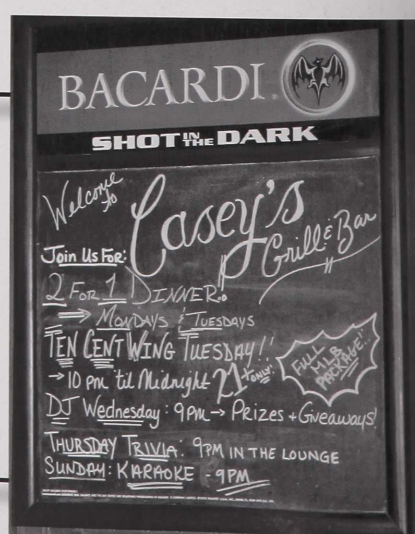 BACARDI®
SHOT IN THE DARK
Welcome to
Casey's
Grill & Bar
Join Us For:
2 FOR 1 DINNER
→ MONDAYS & TUESDAYS
TEN CENT WING TUESDAY!!
→ 10 pm 'til Midnight 21+ ONLY!
FULL MLB PACKAGE!!
DJ Wednesday: 9PM → PRIZES + GIVEAWAYS!
THURSDAY TRIVIA: 9PM IN THE LOUNGE
SUNDAY: KARAOKE - 9PM